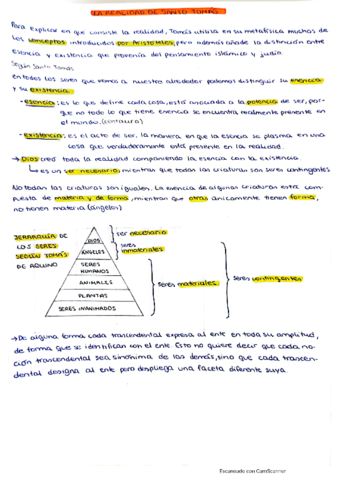 LA REALIDAD DE SANTO TOMÁS
Para explicar en que consiste la realidad, Tomás utiliza en su metafísica muchos de
los conceptos introducidos por Aristóteles, pero además añade la distinción entre
esencia y existencia que provenía del pensamiento islámico y judío.
Según Santo Tomás
en todos los seres que vemos a nuestro alrededor podemos distinguir su esencia
y su existencia.
- esencia: es lo que define cada cosa, está asociada a la potencia de ser, por-
que no todo lo que tiene esencia se encuentra realmente presente en
el mundo. (centauro)
- existencia: es el acto de ser, la manera en que la esencia se plasma en una
cosa que verdaderamente está presente en la realidad.
→ Dios creó toda la realidad componiendo la esencia con la existencia.
↳ es un ser necesario, mientras que todas las criaturas son seres contingentes
No todas las criaturas son iguales. La esencia de algunas criaturas está com-
puesta de materia y de forma, mientras que otras únicamente tienen forma,
no tienen materia (ángeles)
JERARQUÍA DE
LOS SERES
SEGÚN TOMÁS
DE AQUINO
DIOS
ÁNGELES
SERES
HUMANOS
ANIMALES
PLANTAS
SERES INANIMADOS
ser necesario
seres
inmateriales
seres materiales
seres contingentes
→ De alguna forma cada trascendental expresa al ente en toda su amplitud,
de forma que se identifican con el ente. Esto no quiere decir que cada no-
ción trascendental sea sinónima de las demás, sino que cada trascen-
dental designa al ente pero despliega una faceta diferente suya.
Escaneado con CamScanner